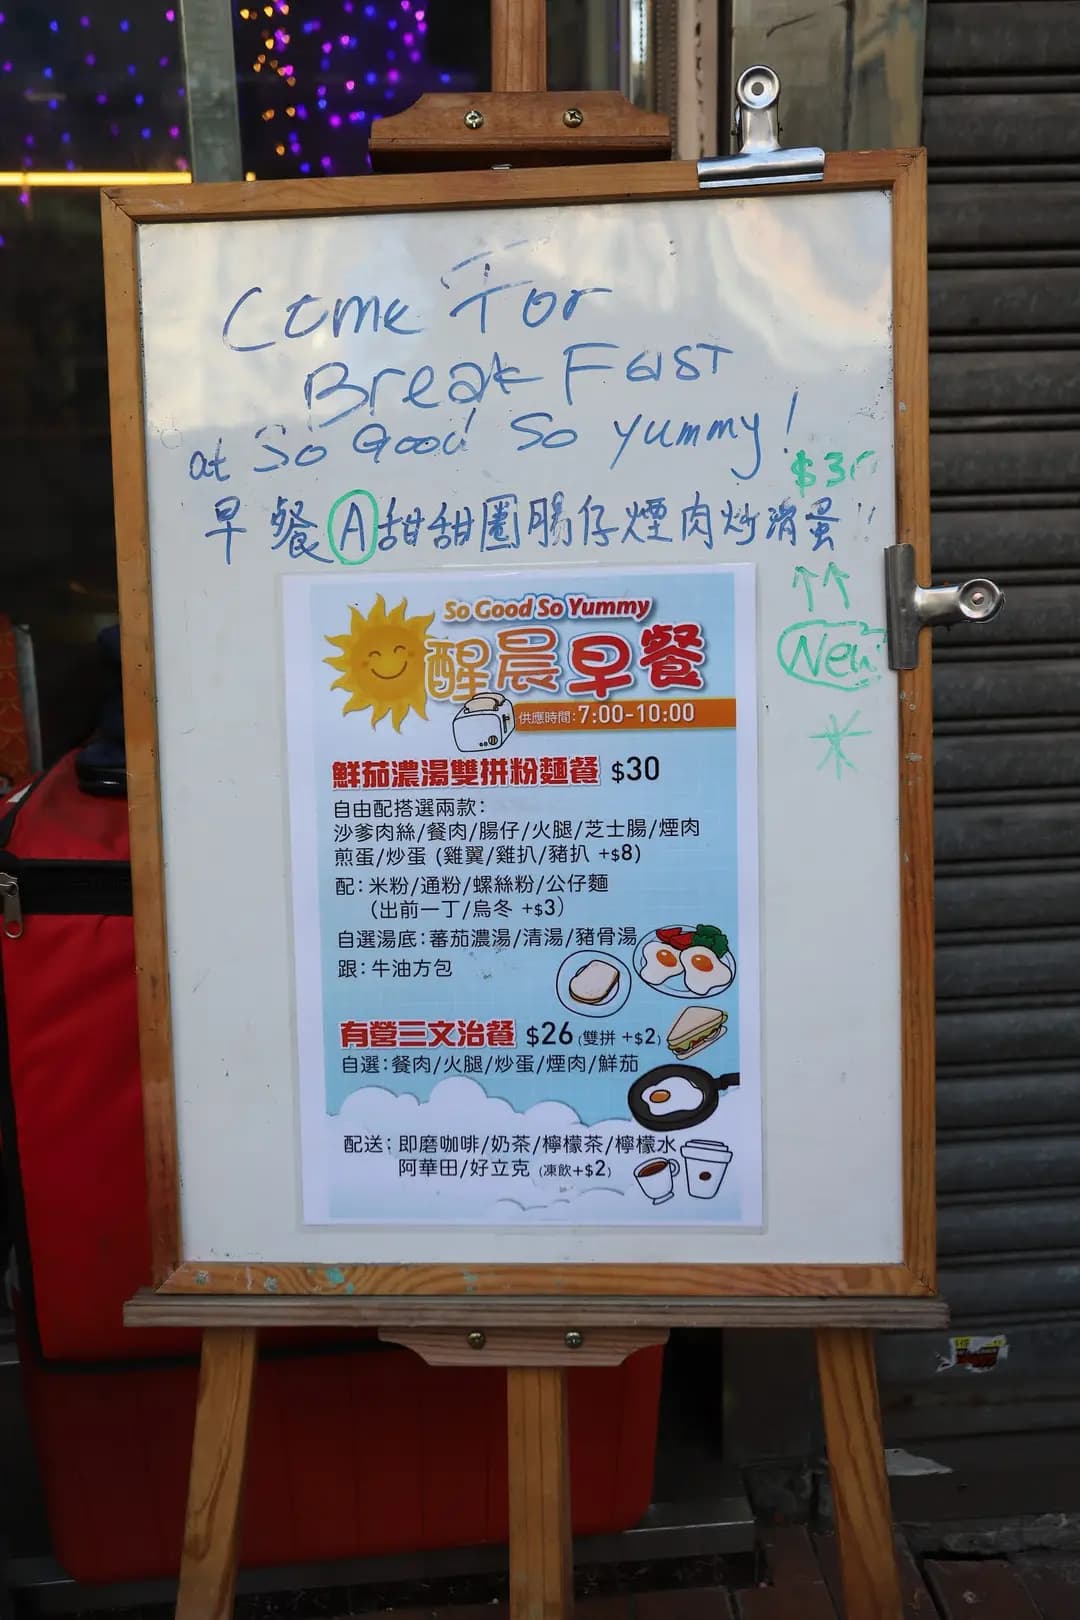 Come For
BreakFast
at So Good So Yummy!
$30
早餐Ⓐ甜甜圈腸仔煙肉炒滑蛋!!
↑↑
New
So Good So Yummy
醒晨早餐
供應時間:7:00-10:00
鮮茄濃湯雙拼粉麵餐 $30
自由配搭選兩款:
沙爹肉絲/餐肉/腸仔/火腿/芝士腸/煙肉
煎蛋/炒蛋 (雞翼/雞扒/豬扒 +$8)
配:米粉/通粉/螺絲粉/公仔麵
(出前一丁/烏冬 +$3)
自選湯底:蕃茄濃湯/清湯/豬骨湯
跟:牛油方包
有營三文治餐 $26 (雙拼 +$2)
自選:餐肉/火腿/炒蛋/煙肉/鮮茄
配送:即磨咖啡/奶茶/檸檬茶/檸檬水
阿華田/好立克 (凍飲+$2)